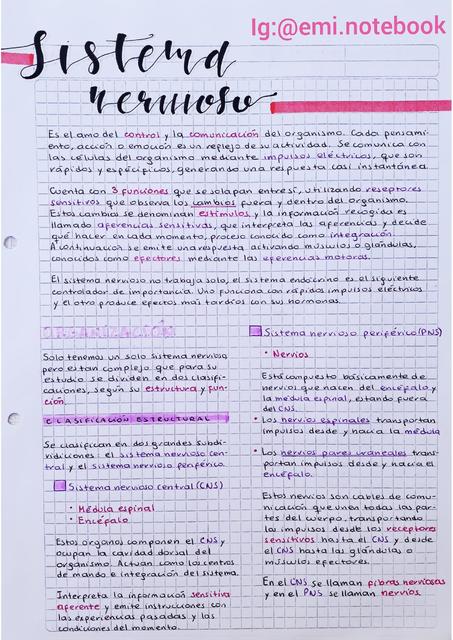 Ig:@emi.notebook
Sistema
nervioso
Es el amo del control y la comunicación del organismo. Cada pensami-
ento, acción o emoción es un reflejo de su actividad. Se comunica con
las células del organismo mediante impulsos eléctricos, que son
rápidos y específicos, generando una respuesta casi instantánea.
Cuenta con 3 funciones que se solapan entre sí, utilizando receptores
sensitivos que observa los cambios fuera y dentro del organismo.
Estos cambios se denominan estímulos y la información recogida es
llamado aferencias sensitivas, que interpreta las aferencias y decide
qué hacer en cada momento, proceso conocido como integración.
A continuación se emite una respuesta activando músculos o glándulas,
conocidos como efectores mediante las eferencias motoras.
El sistema nervioso no trabaja solo, el sistema endócrino es el siguiente
controlador de importancia. Uno funciona con rápidos impulsos eléctricos
y el otro produce efectos más tardíos con sus hormonas.
ORGANIZACIÓN
Solo tenemos un solo sistema nervioso
pero es tan complejo que para su
estudio se dividen en dos clasifi-
caciones, según su estructura y fun-
ción.
CLASIFICACIÓN ESTRUCTURAL
Se clasifican en dos grandes subdi-
vidiciones: el sistema nervioso cen-
tral y el sistema nervioso periférico.
Sistema nervioso central (CNS)
• Médula espinal
• Encéfalo
Estos órganos componen el CNS y
ocupan la cavidad dorsal del
organismo. Actúan como los centros
de mando e integración del sistema.
Interpreta la información sensitiva
aferente y emite instrucciones con
las experiencias pasadas y las
condiciones del momento.
Sistema nervioso periférico (PNS)
• Nervios
Está compuesto básicamente de
nervios que nacen del encéfalo y
la médula espinal, están fuera
del CNS.
• Los nervios espinales transportan
impulsos desde y hacia la médula
• Los nervios pares craneales trans-
portan impulsos desde y hacia el
encéfalo.
Estos nervios son cables de comu-
nicación que unen todas las par-
tes del cuerpo, transportando
los impulsos desde los receptores
sensitivos hasta el CNS y desde
el CNS hasta las glándulas o
músculos efectores.
En el CNS se llaman fibras nerviosas
y en el PNS se llaman nervios